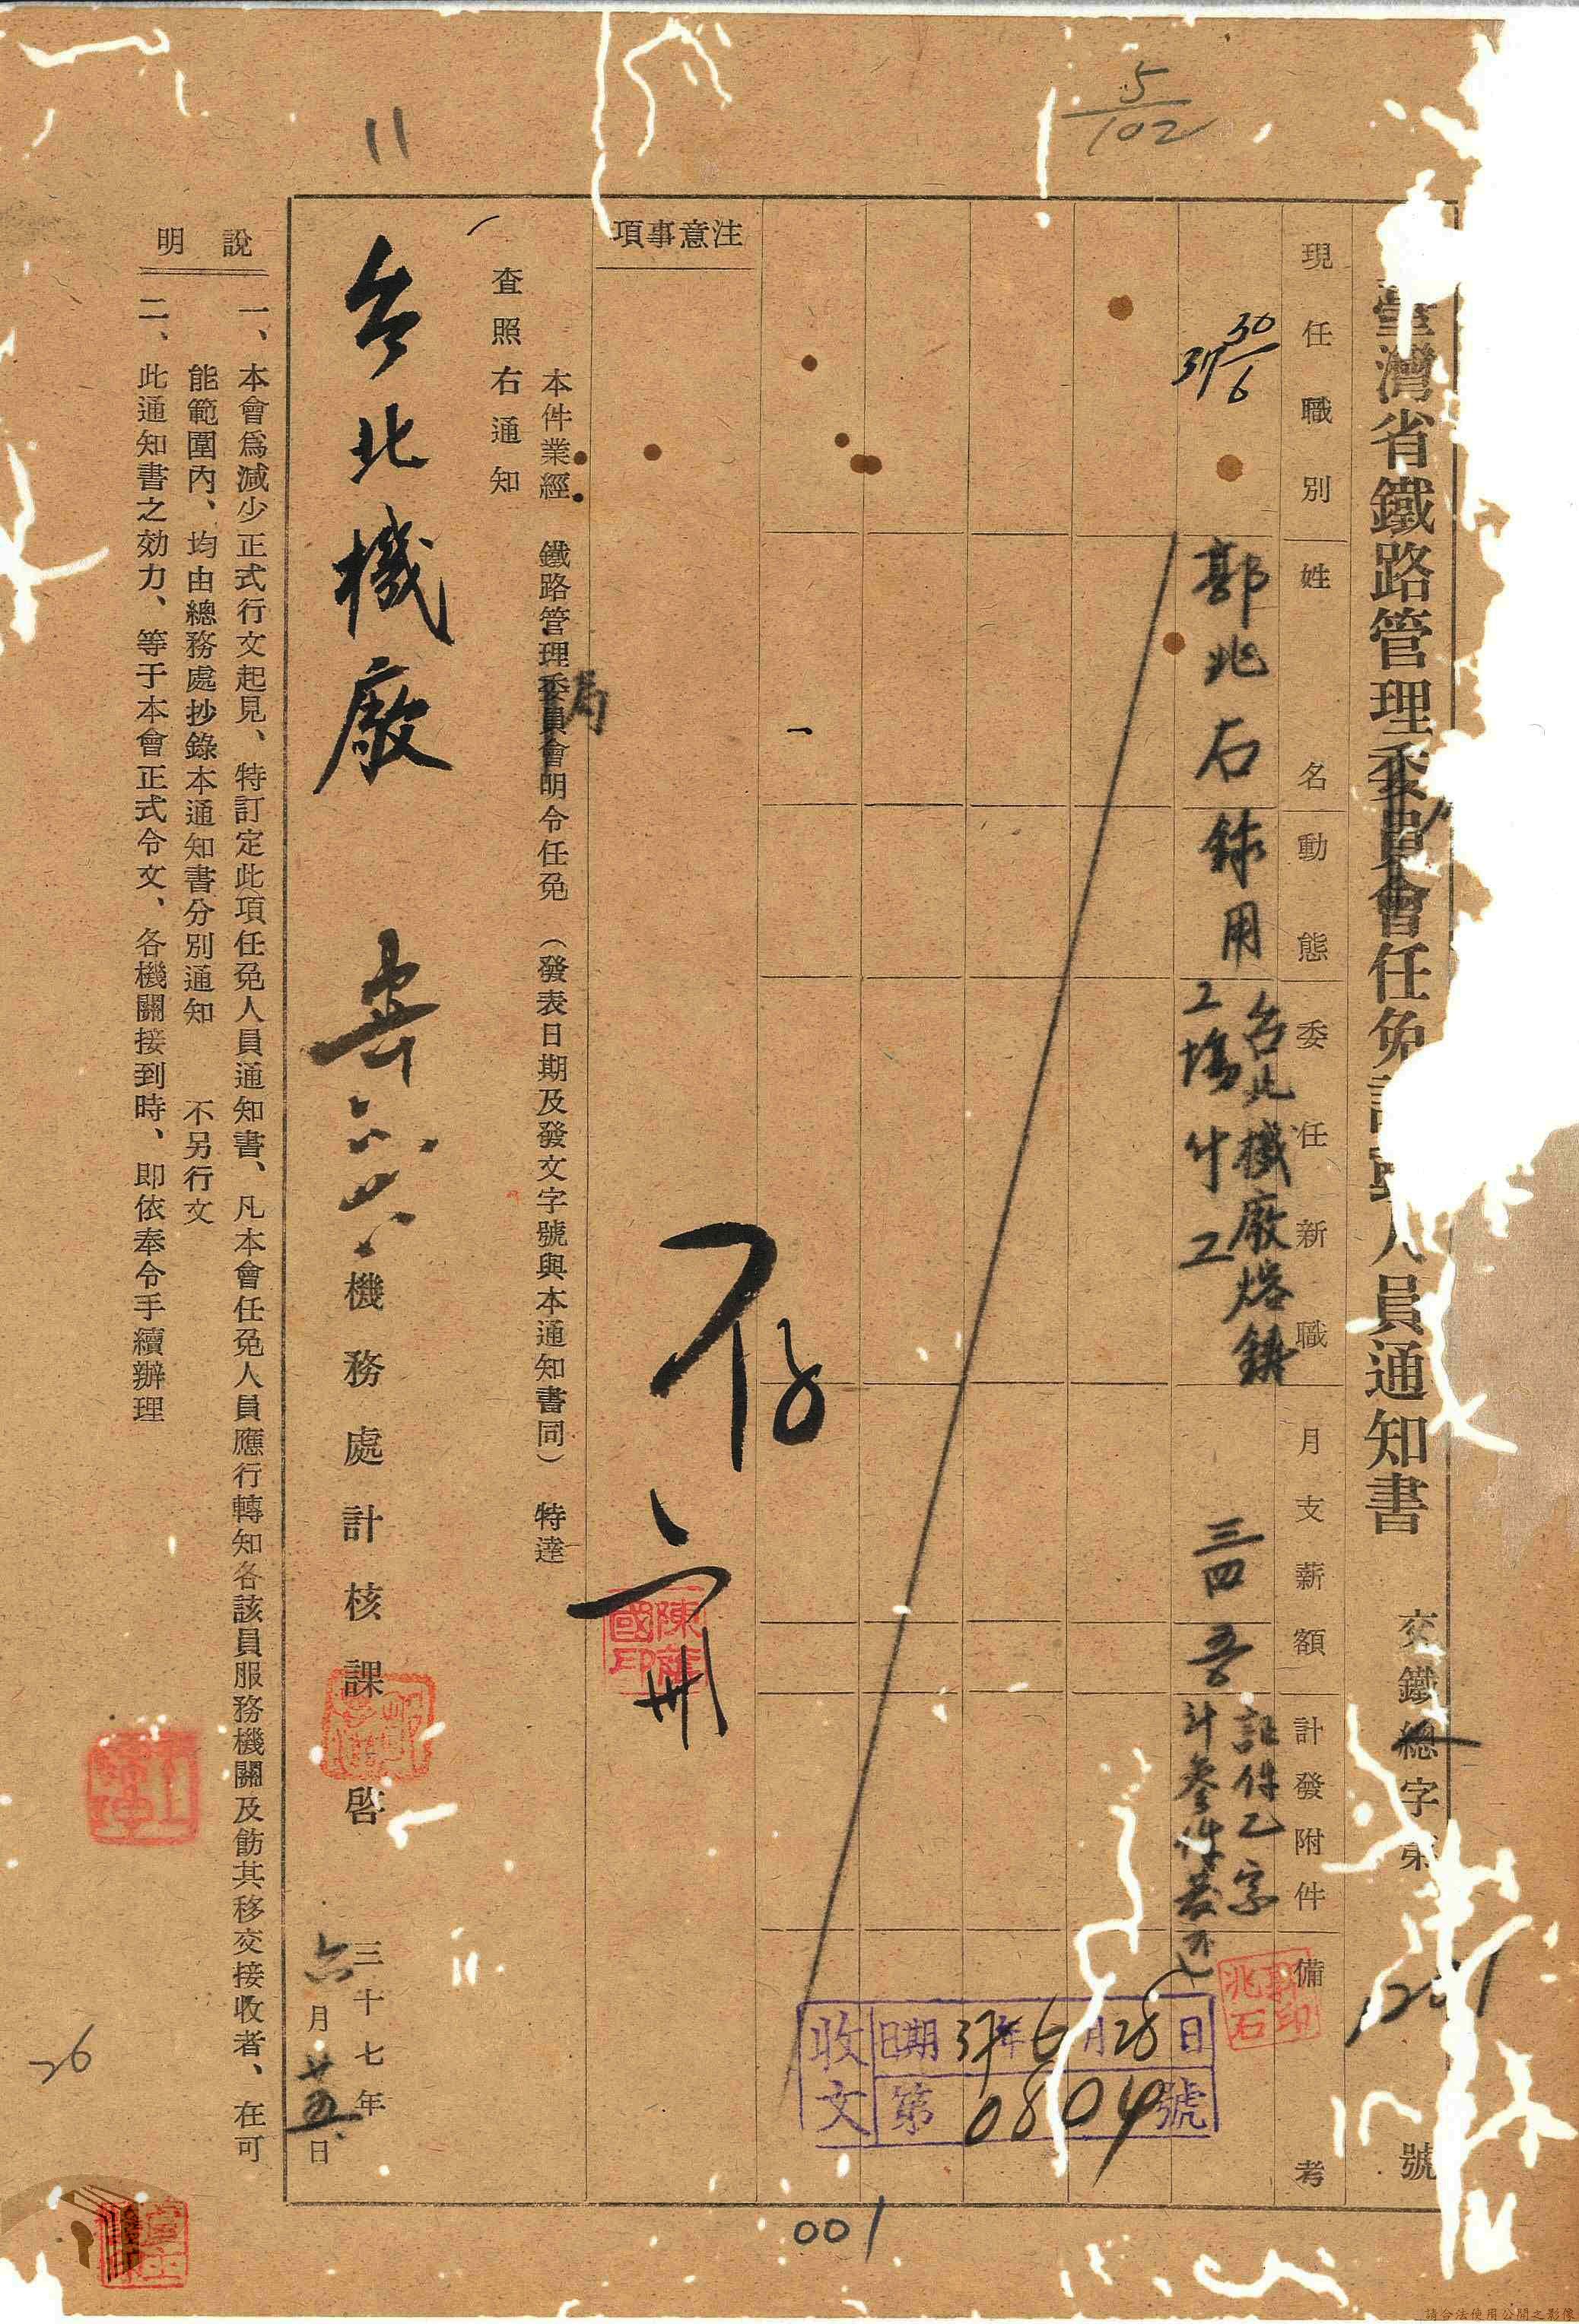 5/102
11
臺灣省鐵路管理委員會任免
人員通知書 交鐵總字第
號
現任職別 姓名 動態 委任新職 月支薪額 計發附件 備考
37 30/6
郭兆石 錄用 台北機廠熔鑄
工場 付工 三四
証件乙字
計參件
注意事項
存
陳
國印
本件業經 鐵路管理委員會明令任免 (發表日期及發文字號與本通知書同) 特達
局
查照右通知
台北機廠
機務處計核課 啓
三十七年
六月廿五日
說明
一、本會爲減少正式行文起見、特訂定此項任免人員通知書、凡本會任免人員應行轉知各該員服務機關及飭其移交接收者、在可
能範圍內、均由總務處抄錄本通知書分別通知 不另行文
二、此通知書之効力、等于本會正式令文、各機關接到時、即依奉令手續辦理
收文 日期 37年6月28日
第0804號
兆石 印
26
001
請合法使用公開之影像